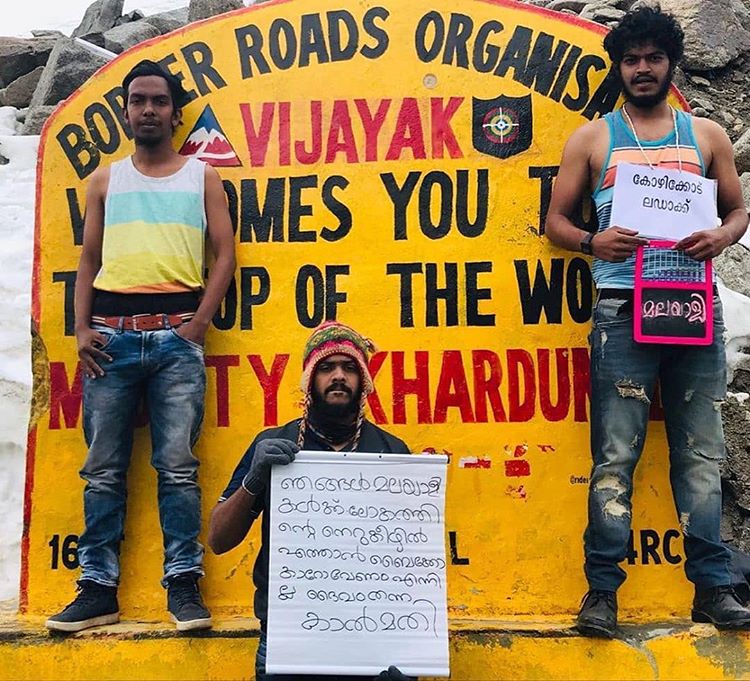 BORDER ROADS ORGANISA
VIJAYAK
OMES YOU TO
TOP OF THE WO
KHARDUN
കോഴിക്കോട്
ലഡാക്ക്
മലയാളി
ഞങ്ങൾ മലയാളി
കൾക്ക് ലോകത്തി
ന്റെ നെറുകയിൽ
എത്താൻ ബൈക്കോ
കാറോ വേണം എന്നി
ല്ല ദൈവം തന്ന
കാൽ മതി